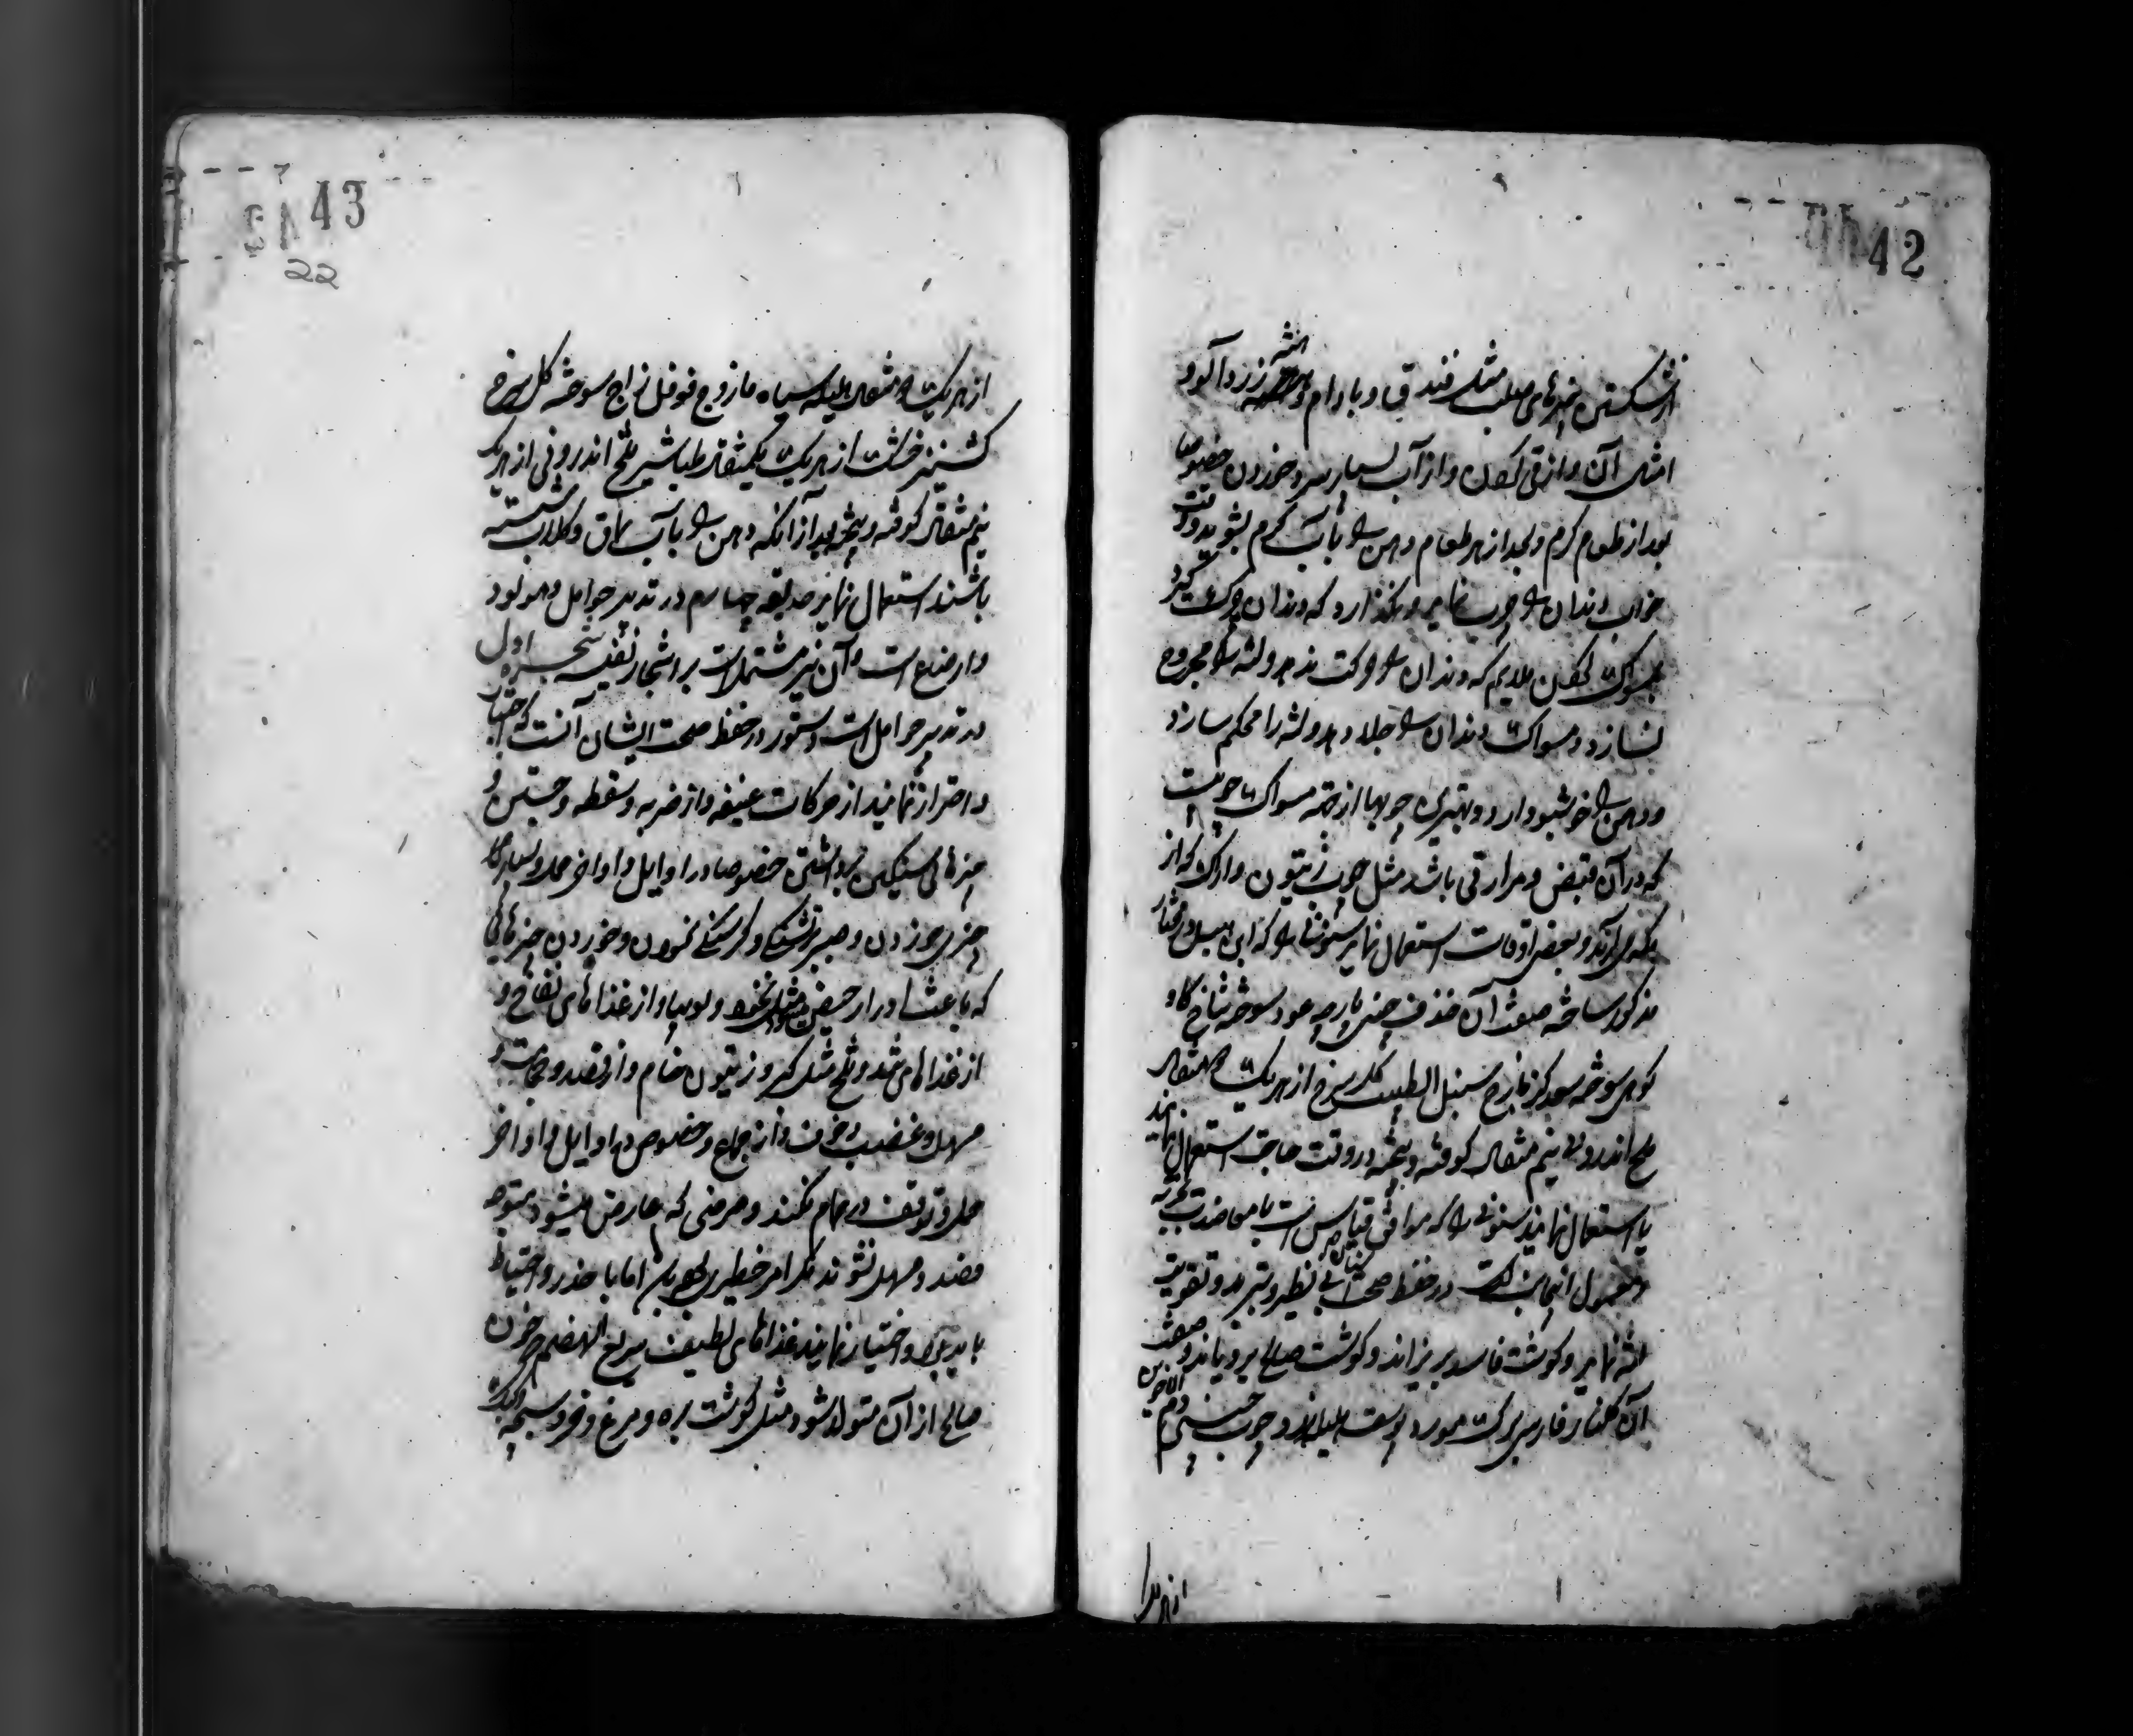 42
از شکستن چیزهای صلب مثل فندق و بادام و هسته زردآلو و
امثال آن و از قی کردن و از آب بسیار سرد خوردن خصوصا
بعد از طعام گرم و بعد از هر طعام دهن را بآب گرم بشوید و وقت
خواب دندان را چرب نماید و نگذارد که دندان چرک گیرد
بمسواک کردن ملایم که دندان را حرکت ندهد و لثه را مجروح
نسازد و مسواک دندان را جلا دهد و لثه را محکم سازد
و دهن را خوشبو دارد و بهترین چوبها از جهة مسواک چوبیست
که در آن قبض و مرارتی باشد مثل چوب زیتون و اراک که از
مکه می آرند و بعضی اوقات استعمال نماید سنونی را که ابن
مذکور ساخته صفت آن خزف چینی عود سوخته شاخ گاو
کوهی سوخته سعد کزمازج سنبل الطیب گل سرخ از هریک مثقال
ملح اندرونی نیم مثقال کوفته و بیخته در وقت حاجت استعمال نمایند
یا استعمال نمایند سنونی را که موافق قیاس است با معاضدت تجربه
و معمول در حفظ صحت اسنان بی نظیر و تبرید و تقویت
لثه نماید و گوشت فاسد بریزاند و گوشت صالح برویاند و صفت
آن گلنار فارسی برگ مورد پوست هلیله زرد چوب چینی دم الاخوین
از هریک
43
22
از هریک مثقال هلیله سیاه مازوج فوفل زاج سوخته گل سرخ
کشنیز خشک از هریک یکمثقال طباشیر ملح اندرونی از هریک
نیم مثقال کوفته و بیخته بعد از آنکه دهن را بآب سماق و گلاب شسته
باشند استعمال نمایند حدیقه چهارم در تدبیر حوامل و مولود
و ارضاع است و آن نیز مشتملست بر اشجار شجره اول
در تدبیر حوامل است و دستور در حفظ صحت ایشان آنست که اجتناب
و احتراز نمایند از حرکات عنیفه و از ضربه و سقطه و جستن و
چیزهای سنگین برداشتن خصوصا در اوایل و اواخر حمل و بسیار
چیزی خوردن و صبر بر تشنگی و گرسنگی نمودن و خوردن چیزهائی
که باعث ادرار حیض شود مثل نخود و لوبیا و از غذاهای نفاخ و
از غذاهای تند و تلخ مثل کبر و زیتون خام و از فصد و حجامت و
مسهل و غضب و خوف و از جماع و خصوص در اوایل و اواخر
حمل و توقف در حمام نکنند و مرضی که عارض میشود متوجه
فصد و مسهل نشوند مگر امر خطیری اما با حذر و احتیاط
باید بود و اختیار نمایند غذاهای لطیف سریع الهضم که خون
صالح از آن متولد شود مثل گوشت بره و مرغ و خروس بچه